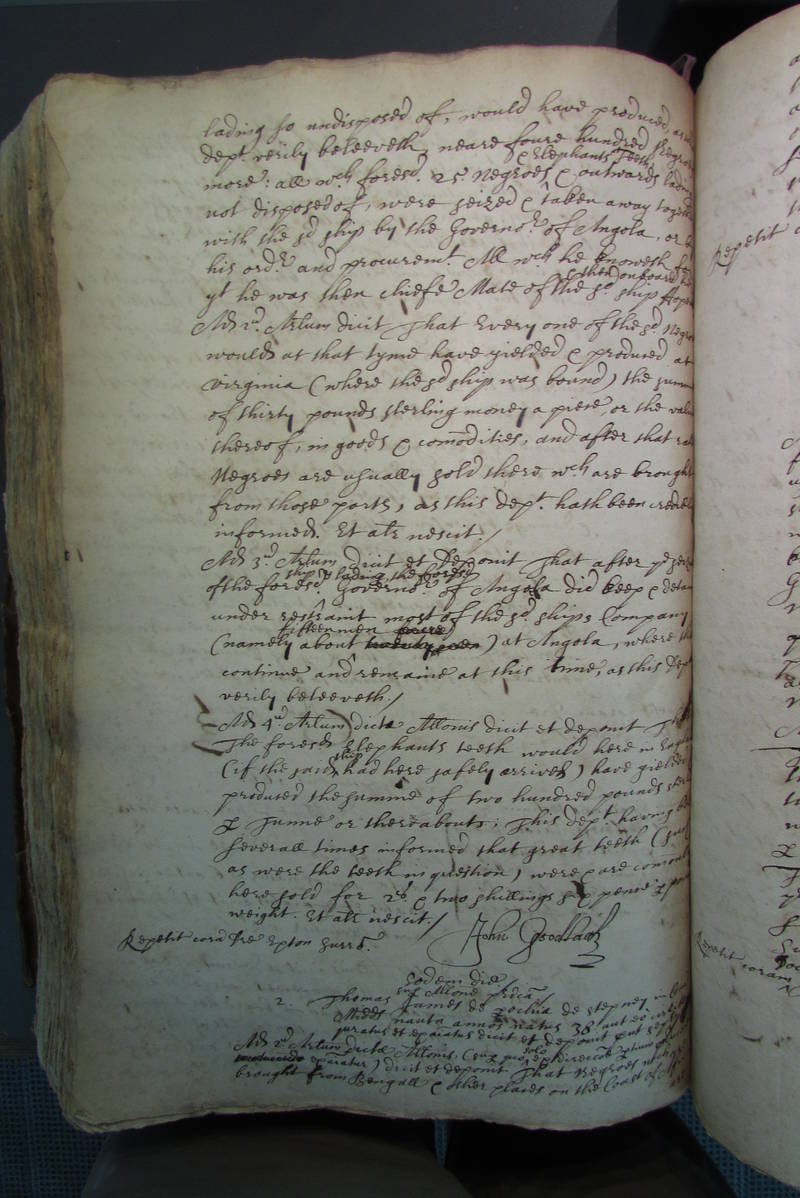 lading so undisposed of, would have produced, as
dept. verily beleeveth, neare foure hundred Negroes
more: all wch. foresd. 25 Negroes & outwards lading
& Elephants Teeth
not disposed of, were seized & taken away together
with the sd ship by the Governor. of Angola, or by
his ordr. and procuremt. All wch he knoweth for
yt he was then cheife Mate of the sd. ship Hope
& then onboard her
Ad 2d. Arlum dicit That Every one of the sd Negroes
would at that tyme have yielded & produced at
Virginia (where the sd ship was bound) the summe
of thirty pounds sterling money a piece, or the value
thereof, in goods & comodities, and after that rate
Negroes are usually sold there wch are brought
from those parts, as this dept. hath been credibly
informed. Et alr nescit./
Ad 3d. Arlum dicit et deponit That after ye seizure
of the foresd. Governor. of Angola did keep & detaine
ship & lading the foresd
under restraint most of the sd. ships Company
(namely about fifteen men) at Angola, where they
continue and remaine at this time, as this Dept.
verily beleeveth./
Ad 4d Arlum dictæ Allonis dicit et deponit That
The foresd Elephants teeth would here in England
(if the said ship had here safely arrived) have yielded
produced the summe of two hundred pounds sterling
p Tunne or thereabouts; This dept. having been
severall times informed that great teeth (such
as were the teeth in question) were & are comonly
here sold for 2s & two shillings & penne p pound
weight. Et alr nescit./
Repetit corã Dre Exton surrd.
John
Eodem die/
sup Allone prdcã/
2. Thomas James de de Stepney in Com
Midds nauta annos natus 38 aut eo circiter
juratus et examatus dicit et deponit put sequitur
Ad 2d Arlum dictæ Allonis. (sup quo solo
examatur) dicit et deponit That Negroes
brought from Bengall & other places on the Coast of
Repetit
Repetit coram